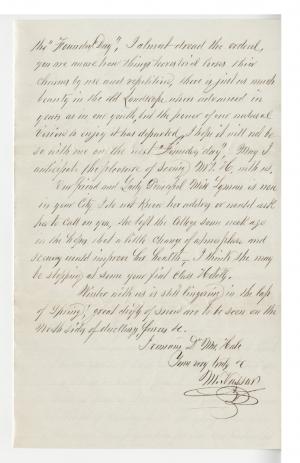 the "Founders Day", I almost dread the ordeal,
you are aware how things however dear loose their
charms by use and repetition, there is just as much
beauty in the old Landscape when advanced in
years as in our youth, but the power of our
vision to enjoy it has departed, I hope it will not be
so with me on the next "Founders day". May I
anticipate the pleasure of seeing Mrs H, with us.
Our friend and Lady Principal Miss Lyman is now
in your City, I do not know her address or would ask
her to call on you, she left the College some weeks ago
in the hope that a little change of atmosphere and
scenery would improve her health, I think she may
be stopping at some your first Class Hotels.
Winter with us is still lingering in the lap
of Spring, great drifts of snow are to be seen on the
North sides of dwellings, fences &c.
I remain Dr Mrs Hale
Yours very truly &
M. Vassar